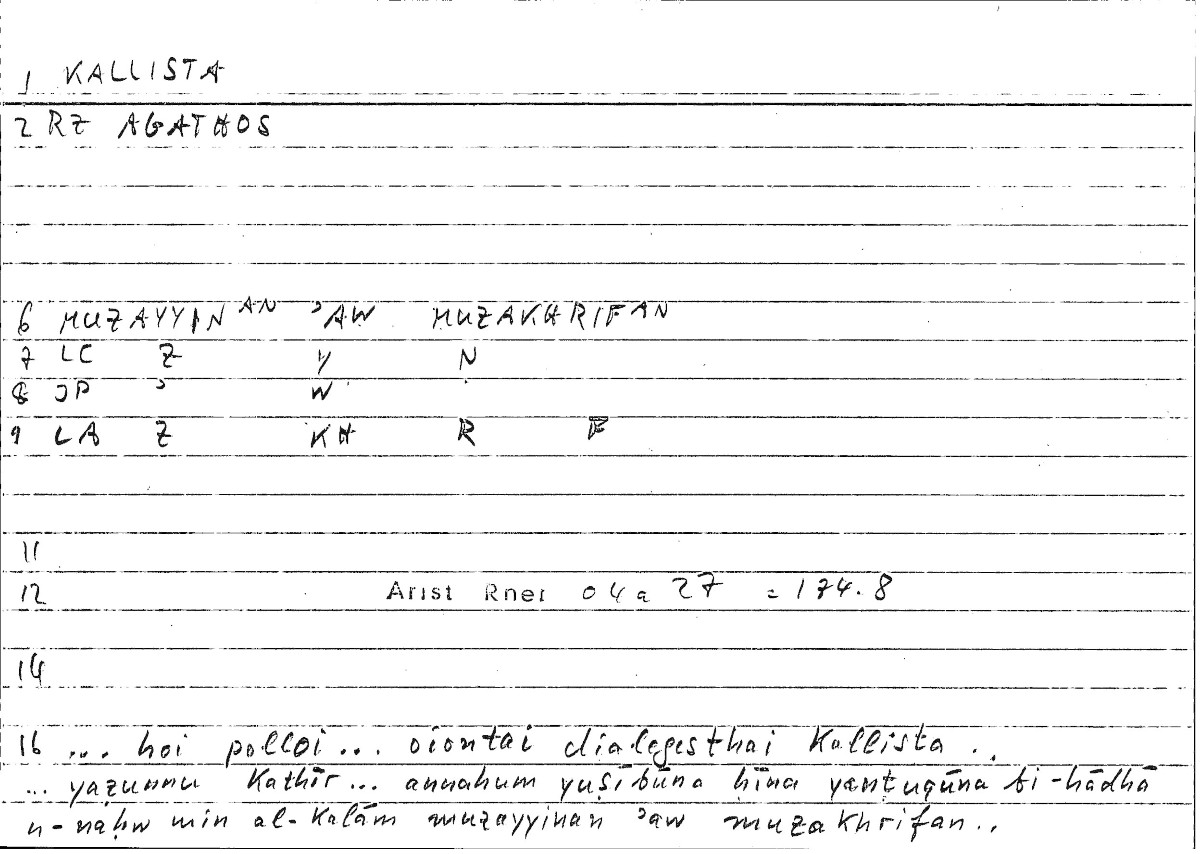 1 KALLISTA
2 RZ AGATHOS
6 MUZAYYINAN ʾAW MUZAKHRIFAN
7 LC Z Y N
8 JP ʾ W
9 LA Z KH R F
11
12 Arist Rhet 04a 27 = 174.8
14
16 ... hoi polloi ... oiontai dialegesthai kallista ..
... yaẓunnu kathīr ... annahum yuṣībūna ḥīna yanṭuqūna bi-hādhā
n-naḥw min al-kalām muzayyinan ʾaw muzakhrifan ..